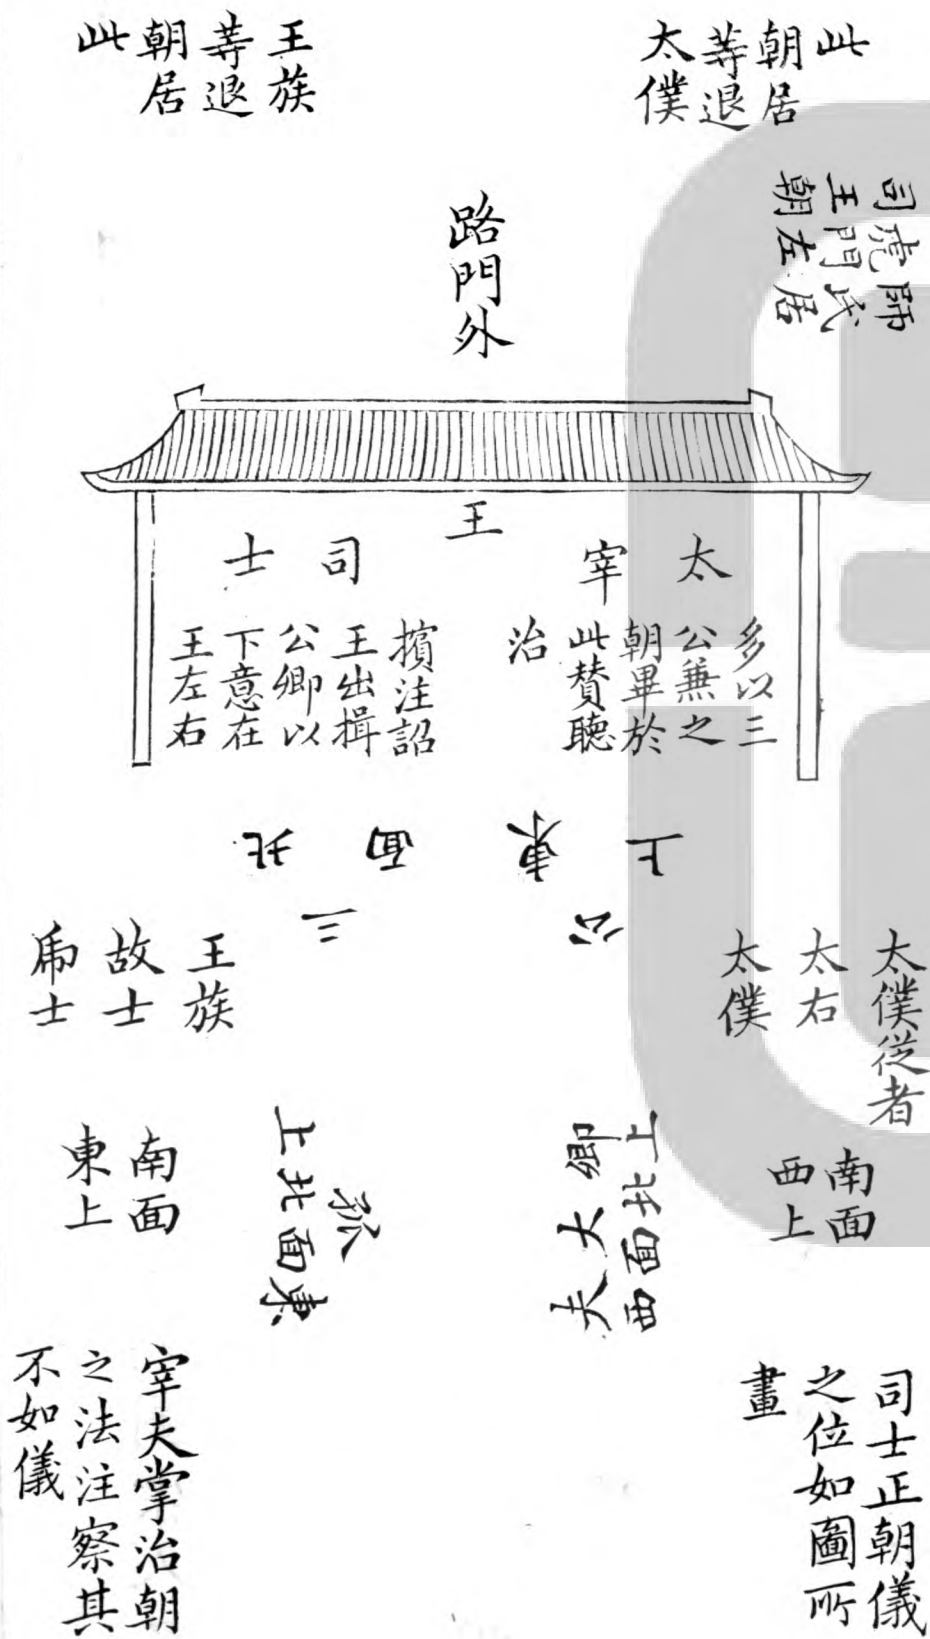 此
朝居
等退
太僕
王族
等退
朝居
此
師氏居
虎門左
司王朝
路門外
王
太宰
多以三
公兼之
朝畢於
此賛聽
治
司士
擯注詔
王出揖
公卿以
下意在
王左右
北面東上
三公
太僕從者
太右
太僕
南面
西上
王族
故士
虎士
南面
東上
西面北上
卿大夫
孤
東面北上
司士正朝儀
之位如圖所
畫
宰夫掌治朝
之法注察其
不如儀